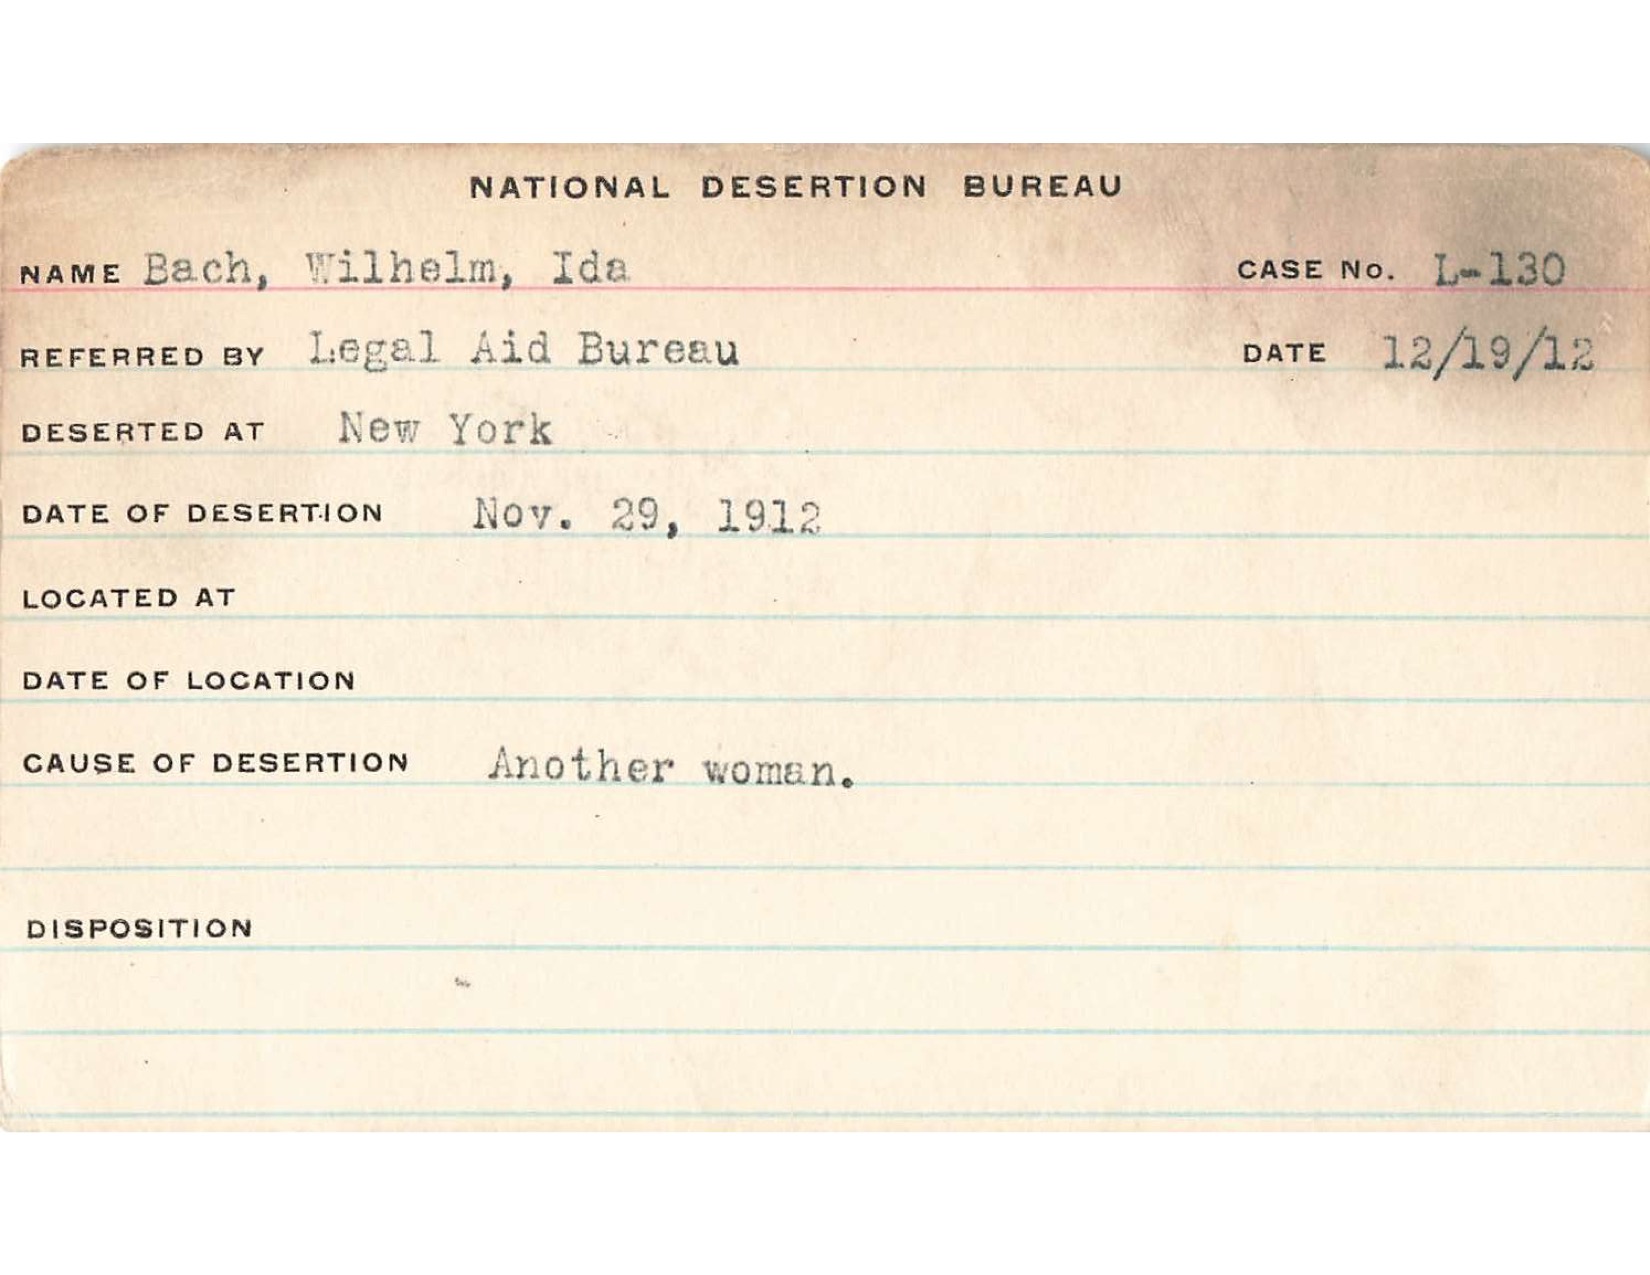 NATIONAL DESERTION BUREAU
NAME Bach, Wilhelm, Ida CASE No. L-130
REFERRED BY Legal Aid Bureau DATE 12/19/12
DESERTED AT New York
DATE OF DESERTION Nov. 29, 1912
LOCATED AT
DATE OF LOCATION
CAUSE OF DESERTION Another woman.
DISPOSITION